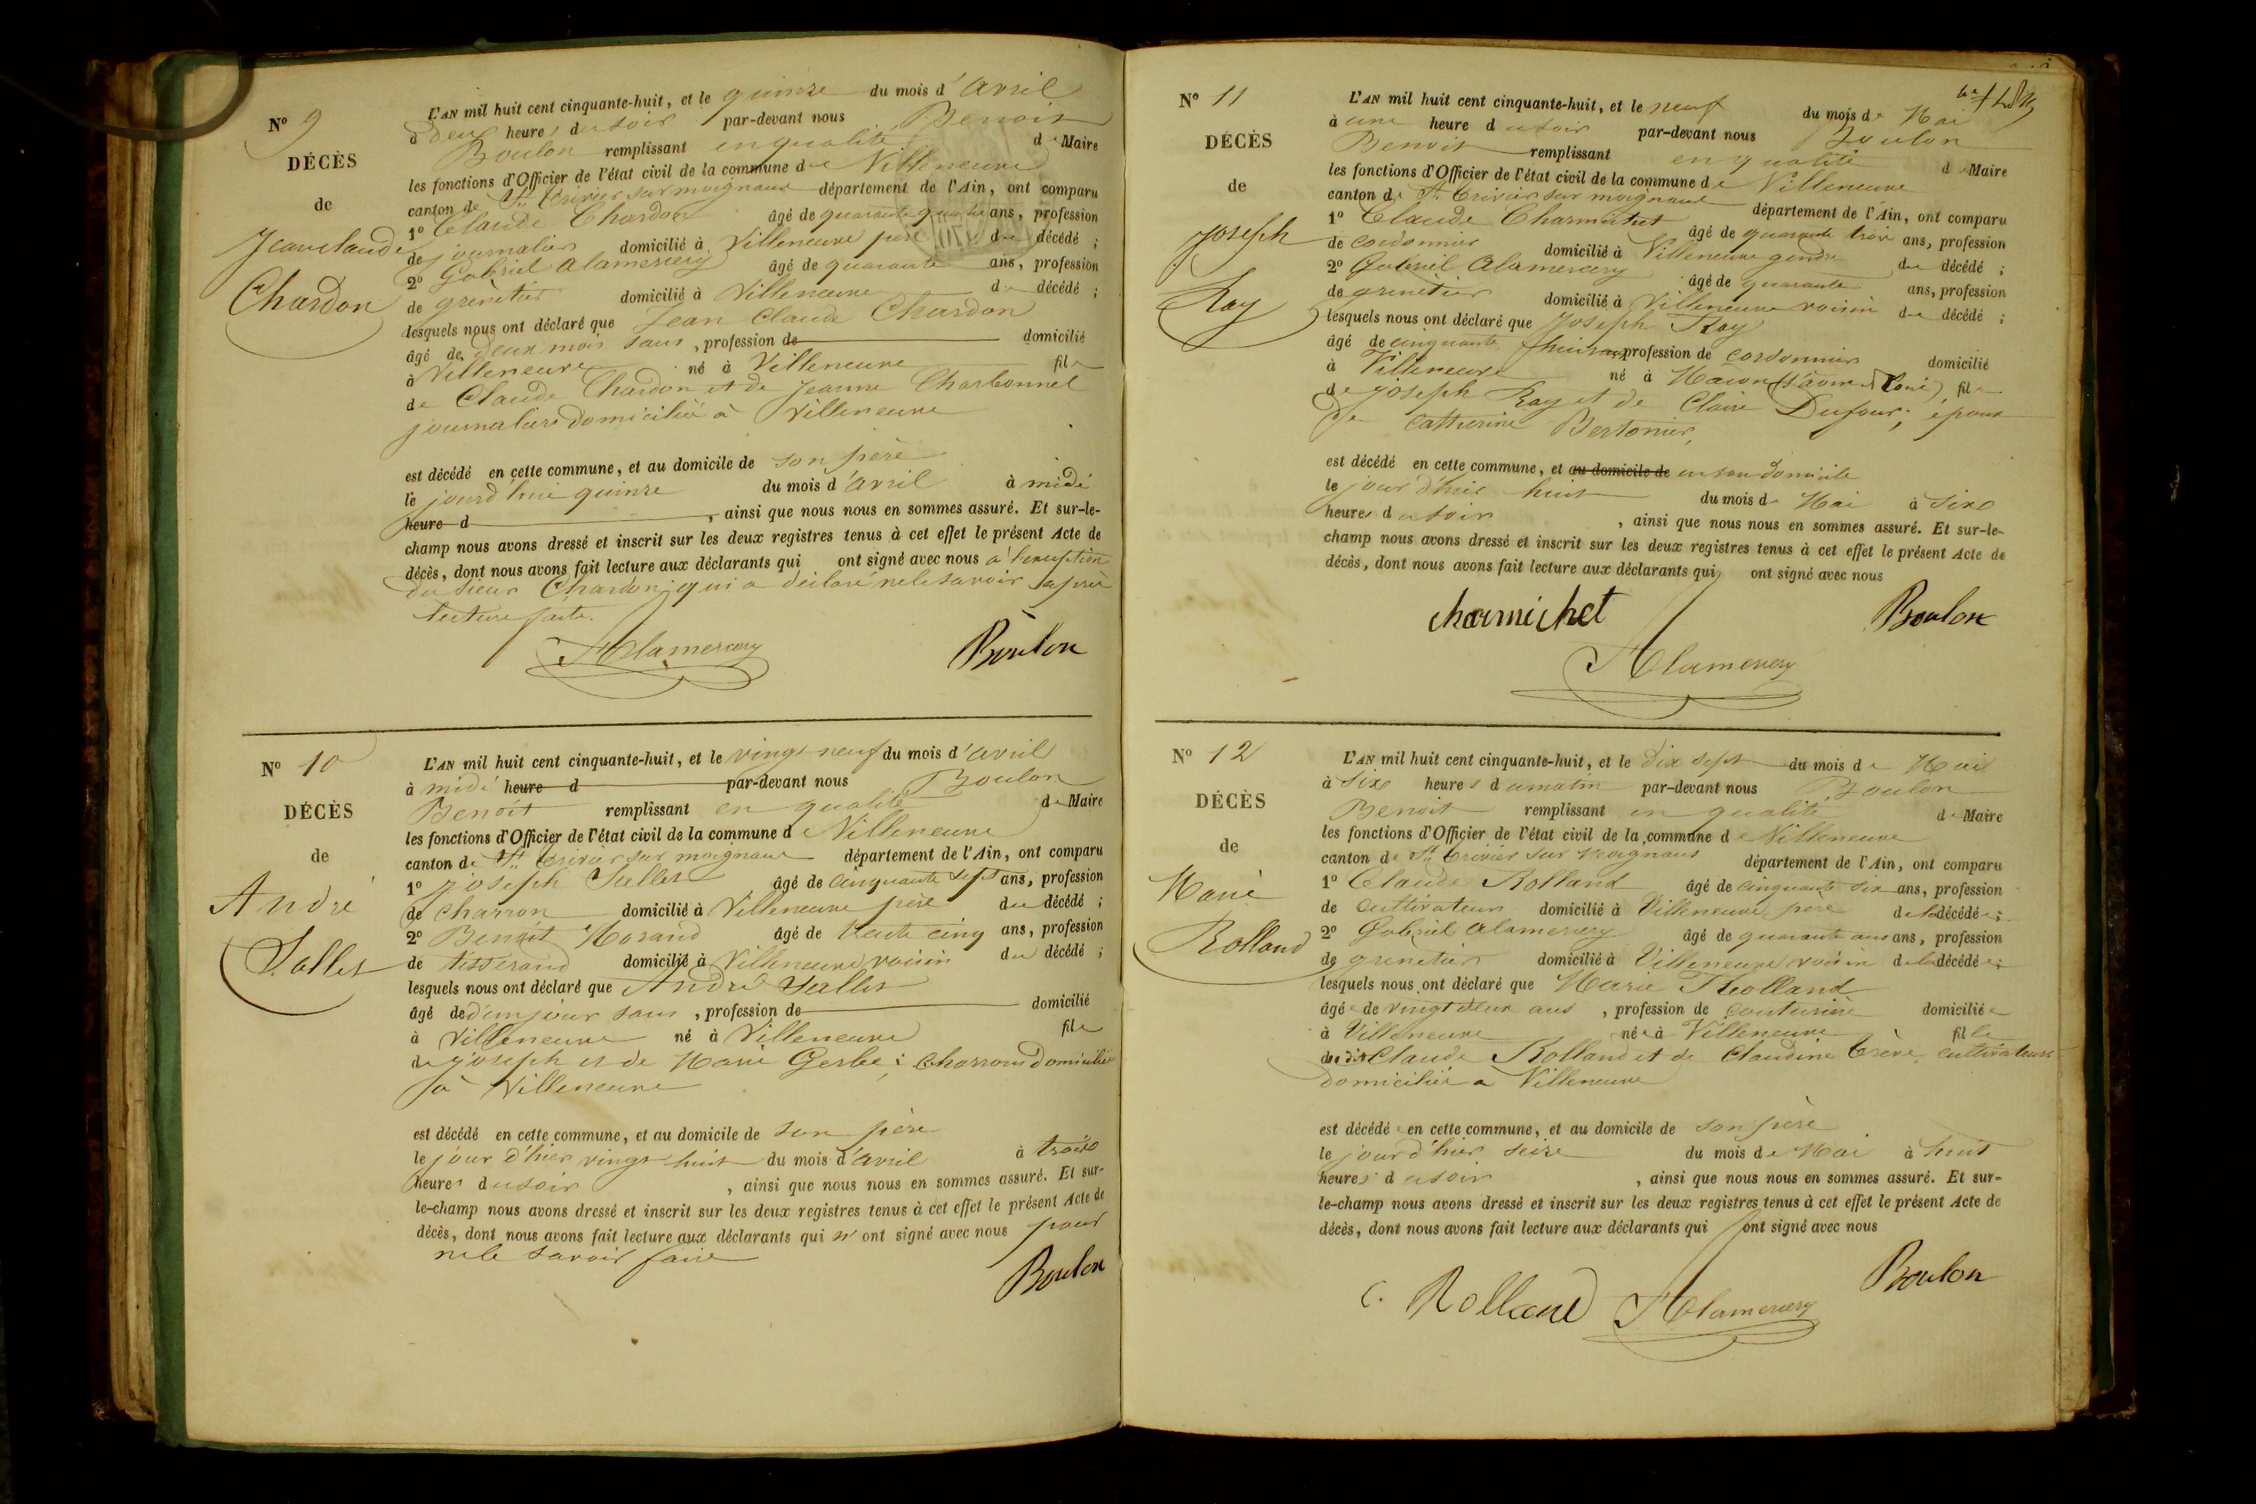 Nº 9
DÉCÈS
de
Jean claude
Chardon
L'AN mil huit cent cinquante-huit, et le quinze du mois d'avril
à deux heures du soir par-devant nous Benoit
Boulon remplissant en qualité de Maire
les fonctions d'Officier de l'état civil de la commune de Villeneuve
canton de St. Trivier sur moignans département de l'Ain, ont comparu
1º Claude Chardon âgé de quarante quatre ans, profession
de journalier domicilié à Villeneuve père du décédé ;
2º Gabriel Alamercery âgé de quarante ans, profession
de grènetier domicilié à Villeneuve du décédé ;
lesquels nous ont déclaré que Jean Claude Chardon
âgé de deux mois sans , profession de domicilié
à Villeneuve né à Villeneuve fils
de Claude Chardon et de Jeanne Charbonnel
journaliers domiciliés à Villeneuve
est décédé en cette commune, et au domicile de son père
le jourd'hui quinze du mois d'avril à midi
heure d , ainsi que nous nous en sommes assuré. Et sur-le-
champ nous avons dressé et inscrit sur les deux registres tenus à cet effet le présent Acte de
décès, dont nous avons fait lecture aux déclarants qui ont signé avec nous à l'exception
du sieur Chardon qui a déclaré ne le savoir après
lecture faite.
Alamercery Boulon
Nº 10
DÉCÈS
de
André
Sallet
L'AN mil huit cent cinquante-huit, et le vingt neuf du mois d'avril
à midi heure d par-devant nous Boulon
Benoit remplissant en qualité de Maire
les fonctions d'Officier de l'état civil de la commune de Villeneuve
canton de St. Trivier sur moignans département de l'Ain, ont comparu
1º Joseph Sallet âgé de cinquante sept ans, profession
de charron domicilié à Villeneuve père du décédé ;
2º Benoit Morand âgé de trente cinq ans, profession
de tisserand domicilié à Villeneuve voisin du décédé ;
lesquels nous ont déclaré que André Sallet
âgé de d'un jour sans , profession de domicilié
à Villeneuve né à Villeneuve fils
de Joseph et de Marie Gerbe ; charrons domiciliés
à Villeneuve
est décédé en cette commune, et au domicile de son père
le jour d'hier vingt huit du mois d'avril à trois
heures du soir , ainsi que nous nous en sommes assuré. Et sur-
le-champ nous avons dressé et inscrit sur les deux registres tenus à cet effet le présent Acte de
décès, dont nous avons fait lecture aux déclarants qui n'ont signé avec nous pour
ne le savoir faire
Boulon
Nº 11
DÉCÈS
de
Joseph
Ray
L'AN mil huit cent cinquante-huit, et le neuf du mois de Mai
à une heure du soir par-devant nous Boulon
Benoit remplissant en qualité de Maire
les fonctions d'Officier de l'état civil de la commune de Villeneuve
canton de St. Trivier sur moignans département de l'Ain, ont comparu
1º Claude Charmichet âgé de quarante trois ans, profession
de cordonnier domicilié à Villeneuve gendre du décédé ;
2º Gabriel Alamercery âgé de quarante ans, profession
de grenetier domicilié à Villeneuve voisin du décédé ;
lesquels nous ont déclaré que Joseph Ray
âgé de cinquante huit ans profession de cordonnier domicilié
à Villeneuve né à Macon (Saône et Loire), fils
de joseph Ray et de Claire Dufour ; époux
de Catherine Bertonier,
est décédé en cette commune, et au domicile de en son domicile
le jour d'hier huit du mois de Mai à six
heures du soir , ainsi que nous nous en sommes assuré. Et sur-le-
champ nous avons dressé et inscrit sur les deux registres tenus à cet effet le présent Acte de
décès, dont nous avons fait lecture aux déclarants qui ont signé avec nous
charmichet Boulon
Alamercery
Nº 12
DÉCÈS
de
Marie
Rolland
L'AN mil huit cent cinquante-huit, et le dix sept du mois de Mai
à six heures du matin par-devant nous Boulon
Benoit remplissant en qualité de Maire
les fonctions d'Officier de l'état civil de la commune de Villeneuve
canton de St. Trivier sur Moignans département de l'Ain, ont comparu
1º Claude Rolland âgé de cinquante six ans, profession
de cultivateur domicilié à Villeneuve, père de la décédée ;
2º Gabriel Alamercery âgé de quarante ans ans, profession
de grenetier domicilié à Villeneuve voisin de la décédée ;
lesquels nous ont déclaré que Marie Rolland
âgée de vingt deux ans , profession de couturière domiciliée
à Villeneuve née à Villeneuve fille
du dit Claude Rolland et de Claudine Crève, cultivateurs
domiciliés à Villeneuve
est décédée en cette commune, et au domicile de son père
le jour d'hier seize du mois de Mai à huit
heures du soir , ainsi que nous nous en sommes assuré. Et sur-
le-champ nous avons dressé et inscrit sur les deux registres tenus à cet effet le présent Acte de
décès, dont nous avons fait lecture aux déclarants qui ont signé avec nous
C. Rolland Alamercery Boulon